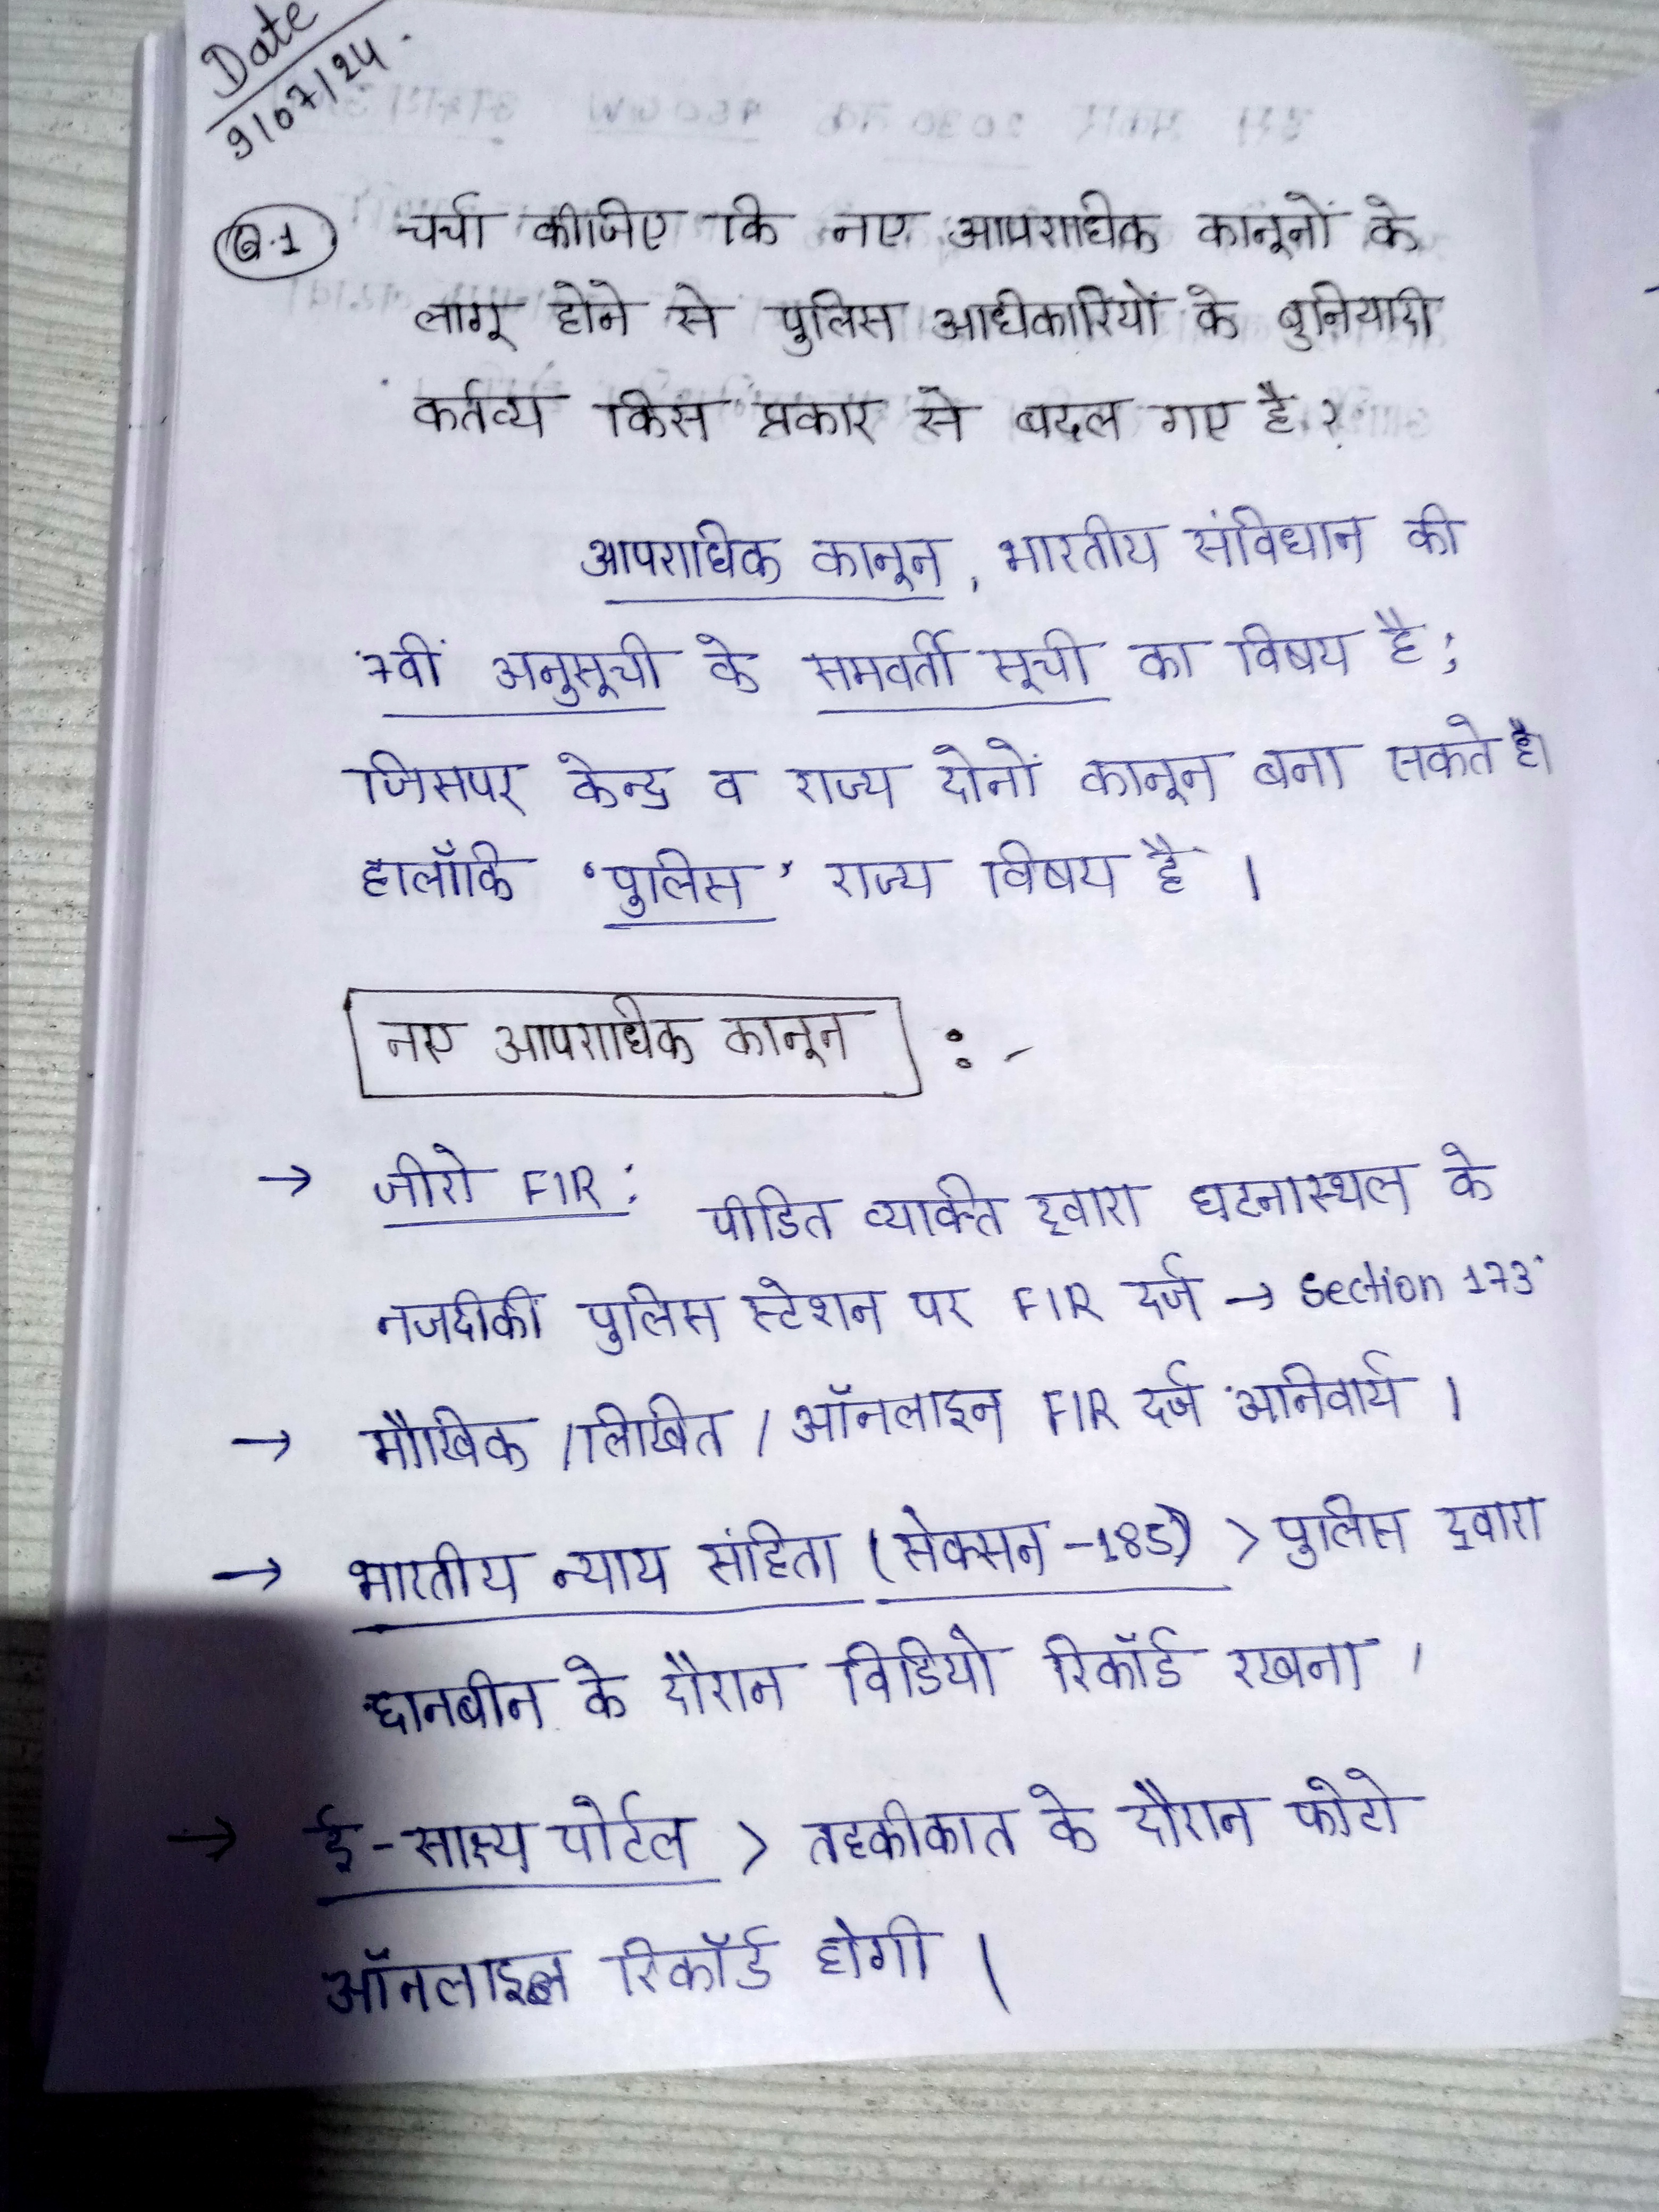 Date
9/07/24.
Q.1 चर्चा कीजिए कि नए आपराधिक कानूनों के
लागू होने से पुलिस अधिकारियों के बुनियादी
कर्तव्य किस प्रकार से बदल गए है?
आपराधिक कानून, भारतीय संविधान की
7वीं अनुसूची के समवर्ती सूची का विषय है;
जिसपर केन्द्र व राज्य दोनों कानून बना सकते है।
हालाँकि 'पुलिस' राज्य विषय है।
नए आपराधिक कानून :-
→ जीरो FIR: पीडित व्यक्ति द्वारा घटनास्थल के
नजदीकी पुलिस स्टेशन पर FIR दर्ज → section 173
→ मौखिक / लिखित / ऑनलाइन FIR दर्ज अनिवार्य।
→ भारतीय न्याय संहिता (सेक्सन -185) > पुलिस द्वारा
छानबीन के दौरान विडियो रिकॉर्ड रखना।
→ ई-साक्ष्य पोर्टल > तहकीकात के दौरान फोटो
ऑनलाइन रिकॉर्ड होगी।